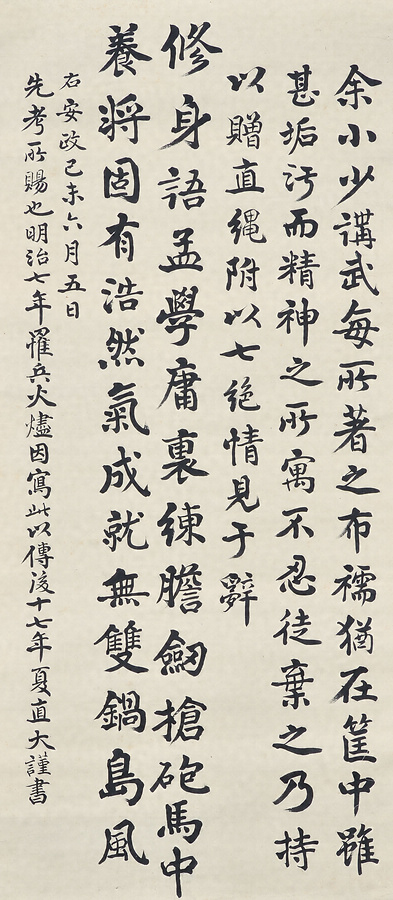 余小少講武每所著之布襦猶在筐中雖
甚垢汚而精神之所寓不忍徒棄之乃持
以贈直縄附以七絶情見于辭
修身語孟學庸裏練膽劔搶砲馬中
養將固有浩然氣成就無雙鍋島風
右安政己未六月五日
先考所賜也明治七年罹兵火燼因寫此以傳後十七年夏直大謹書